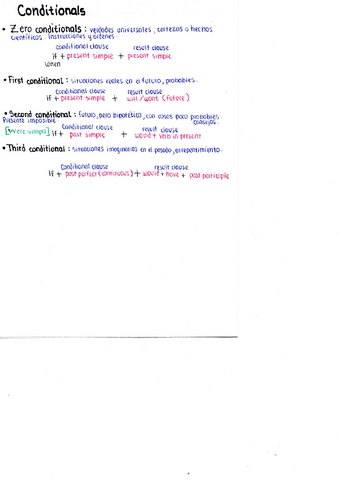 Conditionals
• Zero conditionals: verdades universales, certezas o hechos
científicos. Instrucciones y órdenes.
conditional clause result clause
if + present simple + present simple
when
• First conditional: situaciones reales en el futuro, probables.
conditional clause result clause
if + present simple + will/won't (future)
• Second conditional: futuro, pero hipotético, con cosas poco probables.
Presente imposible consejos.
conditional clause result clause
[were simple] if + past simple + would + verb in present
• Third conditional: situaciones imaginarias en el pasado, arrepentimiento.
conditional clause result clause
if + past perfect (continuous) + would + have + past participle